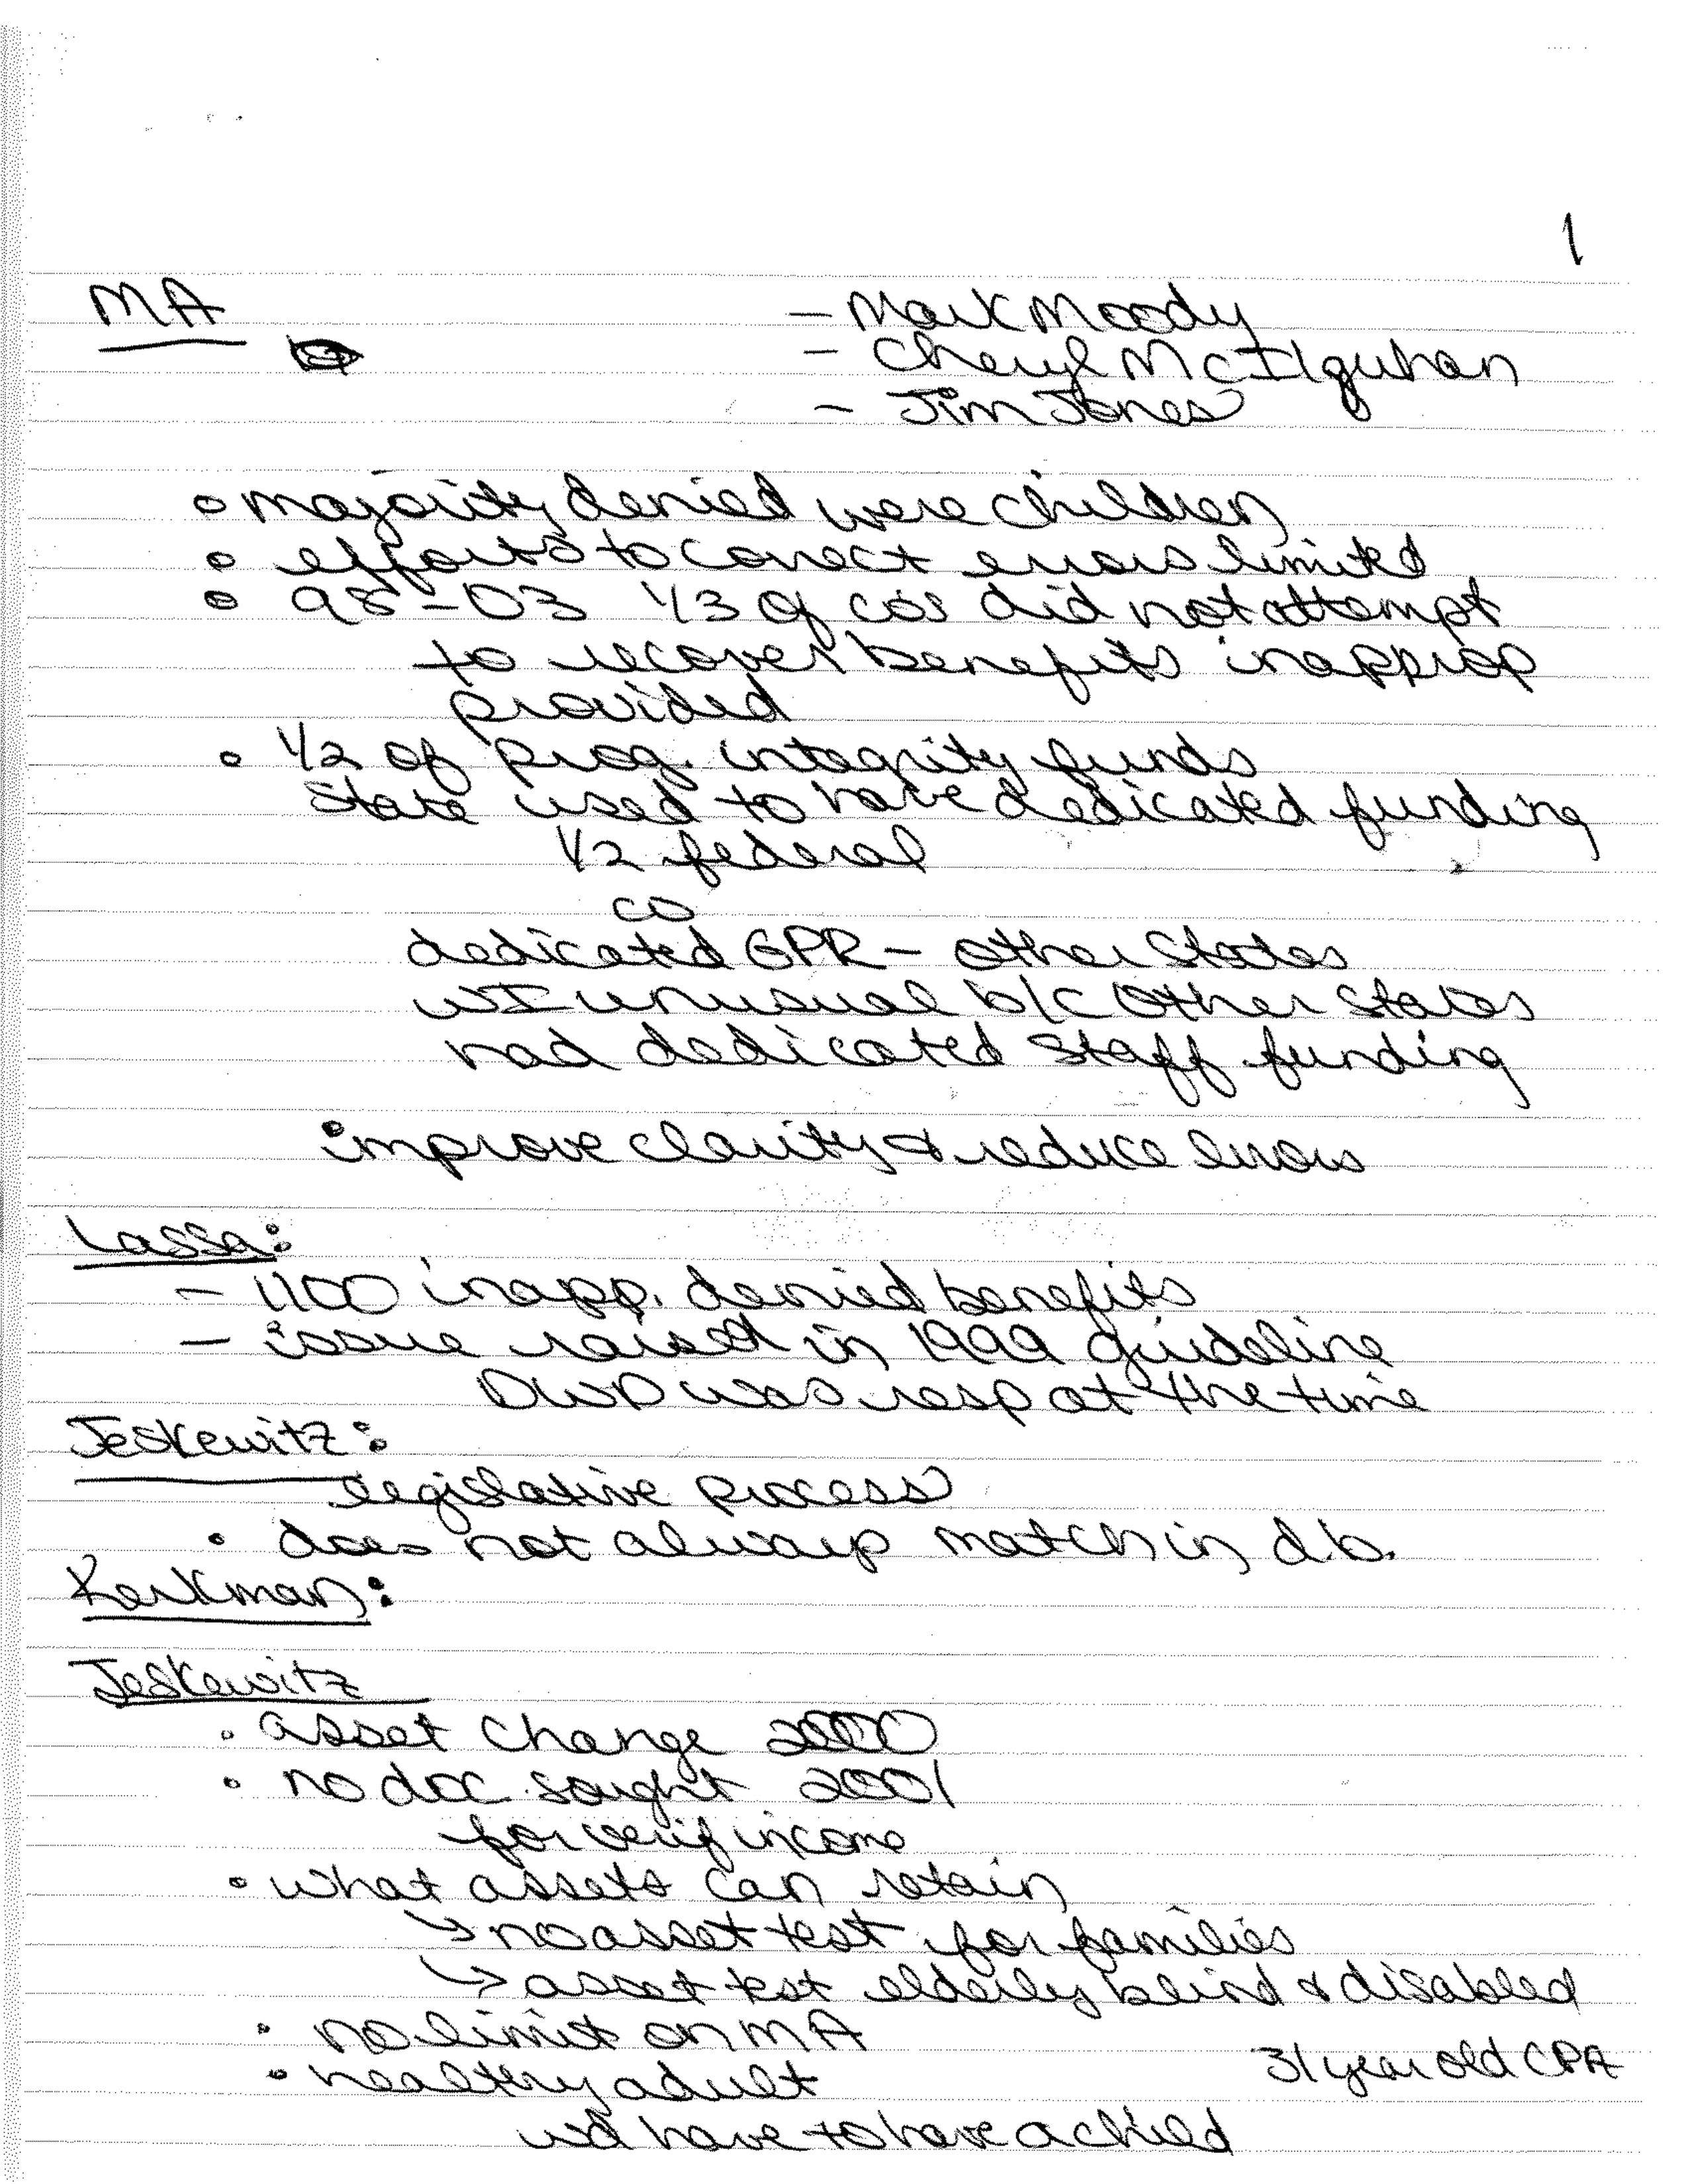 1
MA
- Mark Moody
- Cheryl McIlquhan
- Jim Jones
• majority denied were children
• efforts to correct errors limited
• 98-03 1/3 of co's did not attempt
to recover benefits inapprop
provided
• 1/2 of prog. integrity funds
State used to have dedicated funding
1/2 federal
co
dedicated GPR - other States
WI unusual b/c other states
had dedicated staff funding
• improve clarity & reduce errors
Lassa:
- 1100 inapp. denied benefits
- issue raised in 1999 guideline
DWD was resp at the time
Jeskewitz:
legislative process
• does not always match in d.b.
Kerkman:
Jeskewitz
• asset change 2000
• no doc. sought 2001
for verif income
• what assets can retain
→ no asset test for families
→ asset test elderly blind & disabled
• no limit on MA
• healthy adult
31 year old CPA
wd have to have a child